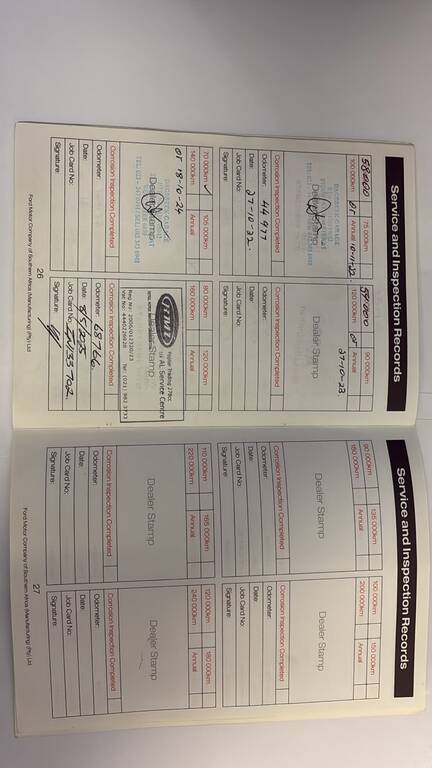 Service and Inspection Records
58000
75 000km
100 000km
or
Annual
10-11-22
Dealer Stamp
Corrosion Inspection Completed
Odometer: 44 977
Date: 27-10-22.
Job Card No:
Signature:
59000
90 000km
120 000km
or
Annual
27-10-23
Corrosion Inspection Completed
Odometer:
Date:
Job Card No:
Signature:
70 000km
105 000km
140 000km
Annual
or 18-10-24
Dealer Stamp
Corrosion Inspection Completed
Odometer:
Date:
Job Card No:
Signature:
80 000km
120 000km
160 000km
Annual
AL Service Centre
Reg No: 2006/012330/23
Tel: (021) 982 3753
Stamp
Corrosion Inspection Completed
Odometer: 68766.
Date:
Job Card No:
Signature:
26
Ford Motor Company of Southern Africa (Manufacturing) (Pty) Ltd
Service and Inspection Records
90 000km
135 000km
180 000km
Annual
Dealer Stamp
Corrosion Inspection Completed
Odometer:
Date:
Job Card No:
Signature:
100 000km
150 000km
200 000km
Annual
Dealer Stamp
Corrosion Inspection Completed
Odometer:
Date:
Job Card No:
Signature:
110 000km
165 000km
220 000km
Annual
Dealer Stamp
Corrosion Inspection Completed
Odometer:
Date:
Job Card No:
Signature:
120 000km
180 000km
240 000km
Annual
Dealer Stamp
Corrosion Inspection Completed
Odometer:
Date:
Job Card No:
Signature:
27
Ford Motor Company of Southern Africa (Manufacturing) (Pty) Ltd